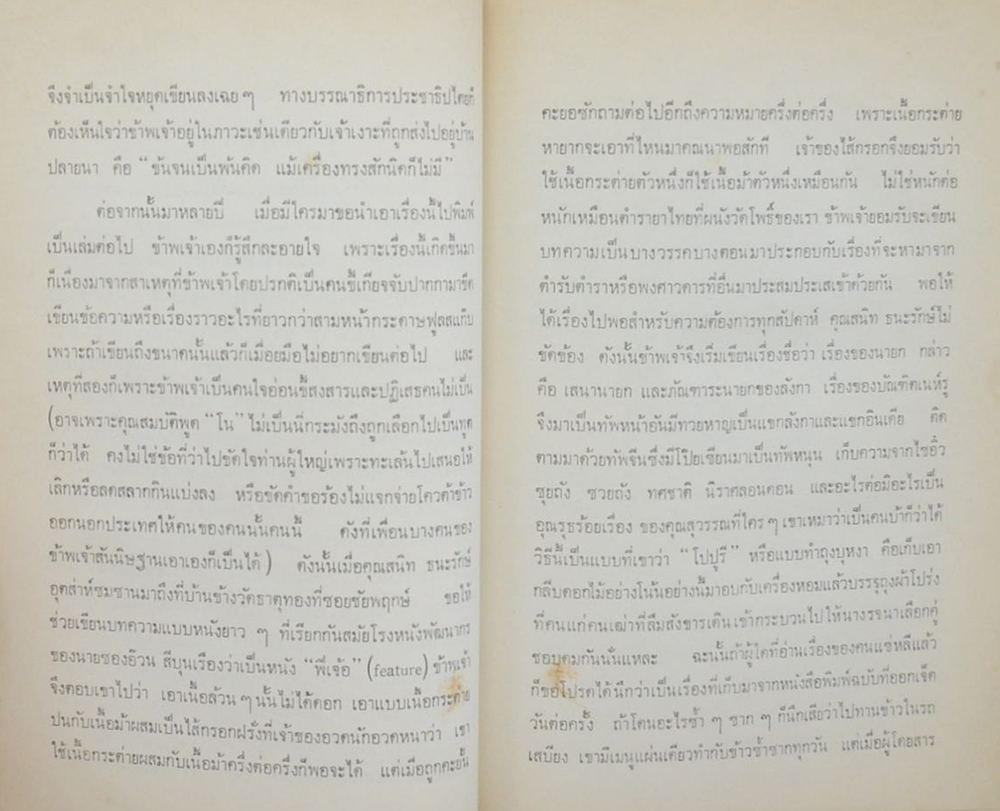 จึงจำเป็นจำใจหยุดเขียนลงเฉย ๆ ทางบรรณาธิการประชาธิปไตยก็
ต้องเห็นใจว่าข้าพเจ้าอยู่ในภาวะเช่นเดียวกับเจ้าเงาะที่ถูกส่งไปอยู่บ้าน
ปลายนา คือ “ขันจนเป็นพ้นคิด แม้เครื่องทรงสักนิดก็ไม่มี”
ต่อจากนั้นมาหลายปี เมื่อมีใครมาขอนำเอาเรื่องนี้ไปพิมพ์
เป็นเล่มต่อไป ข้าพเจ้าเองก็รู้สึกละอายใจ เพราะเรื่องนี้เกิดขึ้นมา
ก็เนื่องมาจากสาเหตุที่ข้าพเจ้าโดยปรกติเป็นคนขี้เกียจจับปากกามาขีด
เขียนข้อความหรือเรื่องราวอะไรที่ยาวกว่าสามหน้ากระดาษฟูลสแก๊บ
เพราะถ้าเขียนถึงขนาดนั้นแล้วก็เมื่อยมือไม่อยากเขียนต่อไป และ
เหตุที่สองก็เพราะข้าพเจ้าเป็นคนใจอ่อนขี้สงสารและปฏิเสธคนไม่เป็น
(อาจเพราะคุณสมบัติพูด “โน” ไม่เป็นนี่กระมังถึงถูกเลือกไปเป็นทูต
ก็ว่าได้ คงไม่ใช่ข้อที่ว่าไปขัดใจท่านผู้ใหญ่เพราะทะเล้นไปเสนอให้
เลิกหรือลดสลากกินแบ่งลง หรือขัดคำขอร้องไม่แจกจ่ายโควต้าข้าว
ออกนอกประเทศให้คนของคนนั้นคนนี้ ดังที่เพื่อนบางคนของ
ข้าพเจ้าสันนิษฐานเอาเองก็เป็นได้) ดังนั้นเมื่อคุณสนิท ธนะรักษ์
อุตส่าห์ซมซานมาถึงที่บ้านข้างวัดธาตุทองที่ซอยชัยพฤกษ์ ขอให้
ช่วยเขียนบทความแบบหนังยาว ๆ ที่เรียกกันสมัยโรงหนังพัฒนากร
ของนายซองอ๊วน สีบุนเรืองว่าเป็นหนัง “ฟีเจ้อ” (feature) ข้าพเจ้า
จึงตอบเขาไปว่า เอาเนื้อล้วน ๆ นั้นไม่ได้ดอก เอาแบบเนื้อกระต่าย
ปนกับเนื้อม้าผสมเป็นไส้กรอกฝรั่งที่เจ้าของอวดนักอวดหนาว่า เขา
ใช้เนื้อกระต่ายผสมกับเนื้อม้าครึ่งต่อครึ่งก็พอจะได้ แต่เมื่อถูกคะยั้น
คะยอซักถามต่อไปอีกถึงความหมายครึ่งต่อครึ่ง เพราะเนื้อกระต่าย
หายากจะเอาที่ไหนมาคณนาพอสักที เจ้าของไส้กรอกจึงยอมรับว่า
ใช้เนื้อกระต่ายตัวหนึ่งก็ใช้เนื้อม้าตัวหนึ่งเหมือนกัน ไม่ใช่หนักต่อ
หนักเหมือนตำรายาไทยที่ผนังวัดโพธิ์ของเรา ข้าพเจ้ายอมรับจะเขียน
บทความเป็นบางวรรคบางตอนมาประกอบกับเรื่องที่จะหามาจาก
ตำรับตำราหรือพงศาวดารที่อื่นมาประสมประเสเข้าด้วยกัน พอให้
ได้เรื่องไปพอสำหรับความต้องการทุกสัปดาห์ คุณสนิท ธนะรักษ์ไม่
ขัดข้อง ดังนั้นข้าพเจ้าจึงเริ่มเขียนเรื่องชื่อว่า เรื่องของนายก กล่าว
คือ เสนานายก และภัณฑาระนายกของลังกา เรื่องของบัณฑิตเนห์รู
จึงมาเป็นทัพหน้าอันมีทวยหาญเป็นแขกลังกาและแขกอินเดีย ติด
ตามมาด้วยทัพจีนซึ่งมีโป๊ยเซียนมาเป็นทัพหนุน เก็บความจากไซอิ๋ว
ซุยถัง ซวยถัง ทศชาติ นิราศลอนดอน และอะไรต่อมิอะไรเป็น
อุณรุธร้อยเรื่อง ของคุณสุวรรณที่ใคร ๆ เขาเหมาว่าเป็นคนบ้าก็ว่าได้
วิธีนี้เป็นแบบที่เขาว่า “โปปูรี” หรือแบบทำถุงบุหงา คือเก็บเอา
กลีบดอกไม้อย่างโน้นอย่างนี้มาอบกับเครื่องหอมแล้วบรรจุถุงผ้าโปร่ง
ที่คนแก่คนเฒ่าที่ลืมสังขารเดินเข้ากระบวนไปให้นางรจนาเลือกคู่
ชอบดมกันนั่นแหละ ฉะนั้นถ้าผู้ใดที่อ่านเรื่องของคนแซ่หลีแล้ว
ก็ขอโปรดได้นึกว่าเป็นเรื่องที่เก็บมาจากหนังสือพิมพ์ฉบับที่ออกเจ็ด
วันต่อครั้ง ถ้าโดนอะไรซ้ำ ๆ ซาก ๆ ก็นึกเสียว่าไปทานข้าวในรถ
เสบียง เขามีเมนูแผ่นเดียวทำกับข้าวซ้ำซากทุกวัน แต่เมื่อผู้โดยสาร